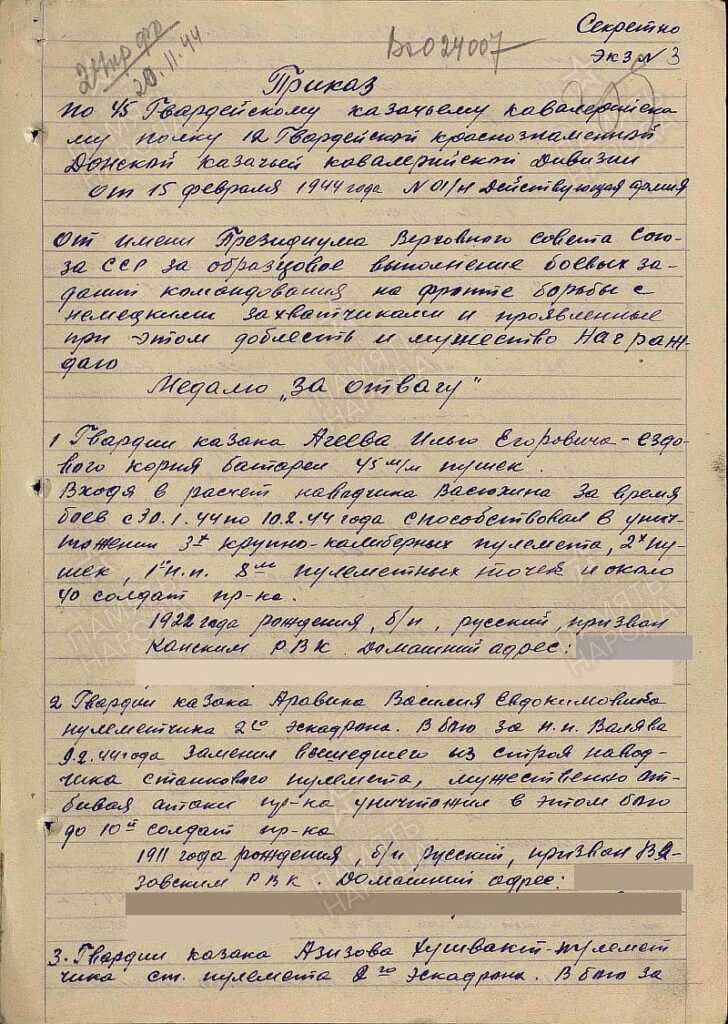 Секретно
экз N 3
20.11.44
Вх024007
Приказ
по 45 Гвардейскому казачьему кавалерийска
му полку 12 Гвардейской краснознаменной
Донской казачьей кавалерийской Дивизии
от 15 февраля 1944 года N 01/н Действующая армия
От имени Президиума Верховного совета Сою-
за ССР за образцовое выполнение боевых за-
даний командования на фронте борьбы с
немецкими захватчиками и проявленные
при этом доблесть и мужество Награж-
даю
Медалю „За отвагу"
1 Гвардии казака Агеева Илью Егоровича - ездо-
вого корня батареи 45 м/м пушек.
Входя в расчет наводчика Васюхина за время
боев с 30.1.44 по 10.2.44 года способствовал в унич-
тожении 3х крупно-калиберных пулемета, 2х пу-
шек, 8ми пулеметных точек и около
40 солдат пр-ка.
1922 года рождения, б/п, русский, призван
Канским РВК. Домашний адрес:
2 Гвардии казака Аравина Василия Евдокимовича
пулеметчика 2го эскадрона. В бою за н.п. Валява
9.2.44 года заменив вышедшего из строя навод-
чика станкового пулемета, мужественно от-
бивая атаки пр-ка уничтожил в этом бою
до 10ти солдат пр-ка
1911 года рождения, б/п русский, призван Вя-
зовским РВК. Домашний адрес:
3. Гвардии казака Азизова Хушвакт - пулемет
чика ст. пулемета 2го эскадрона. В бою за
ПАМЯТЬ
НАРОДА